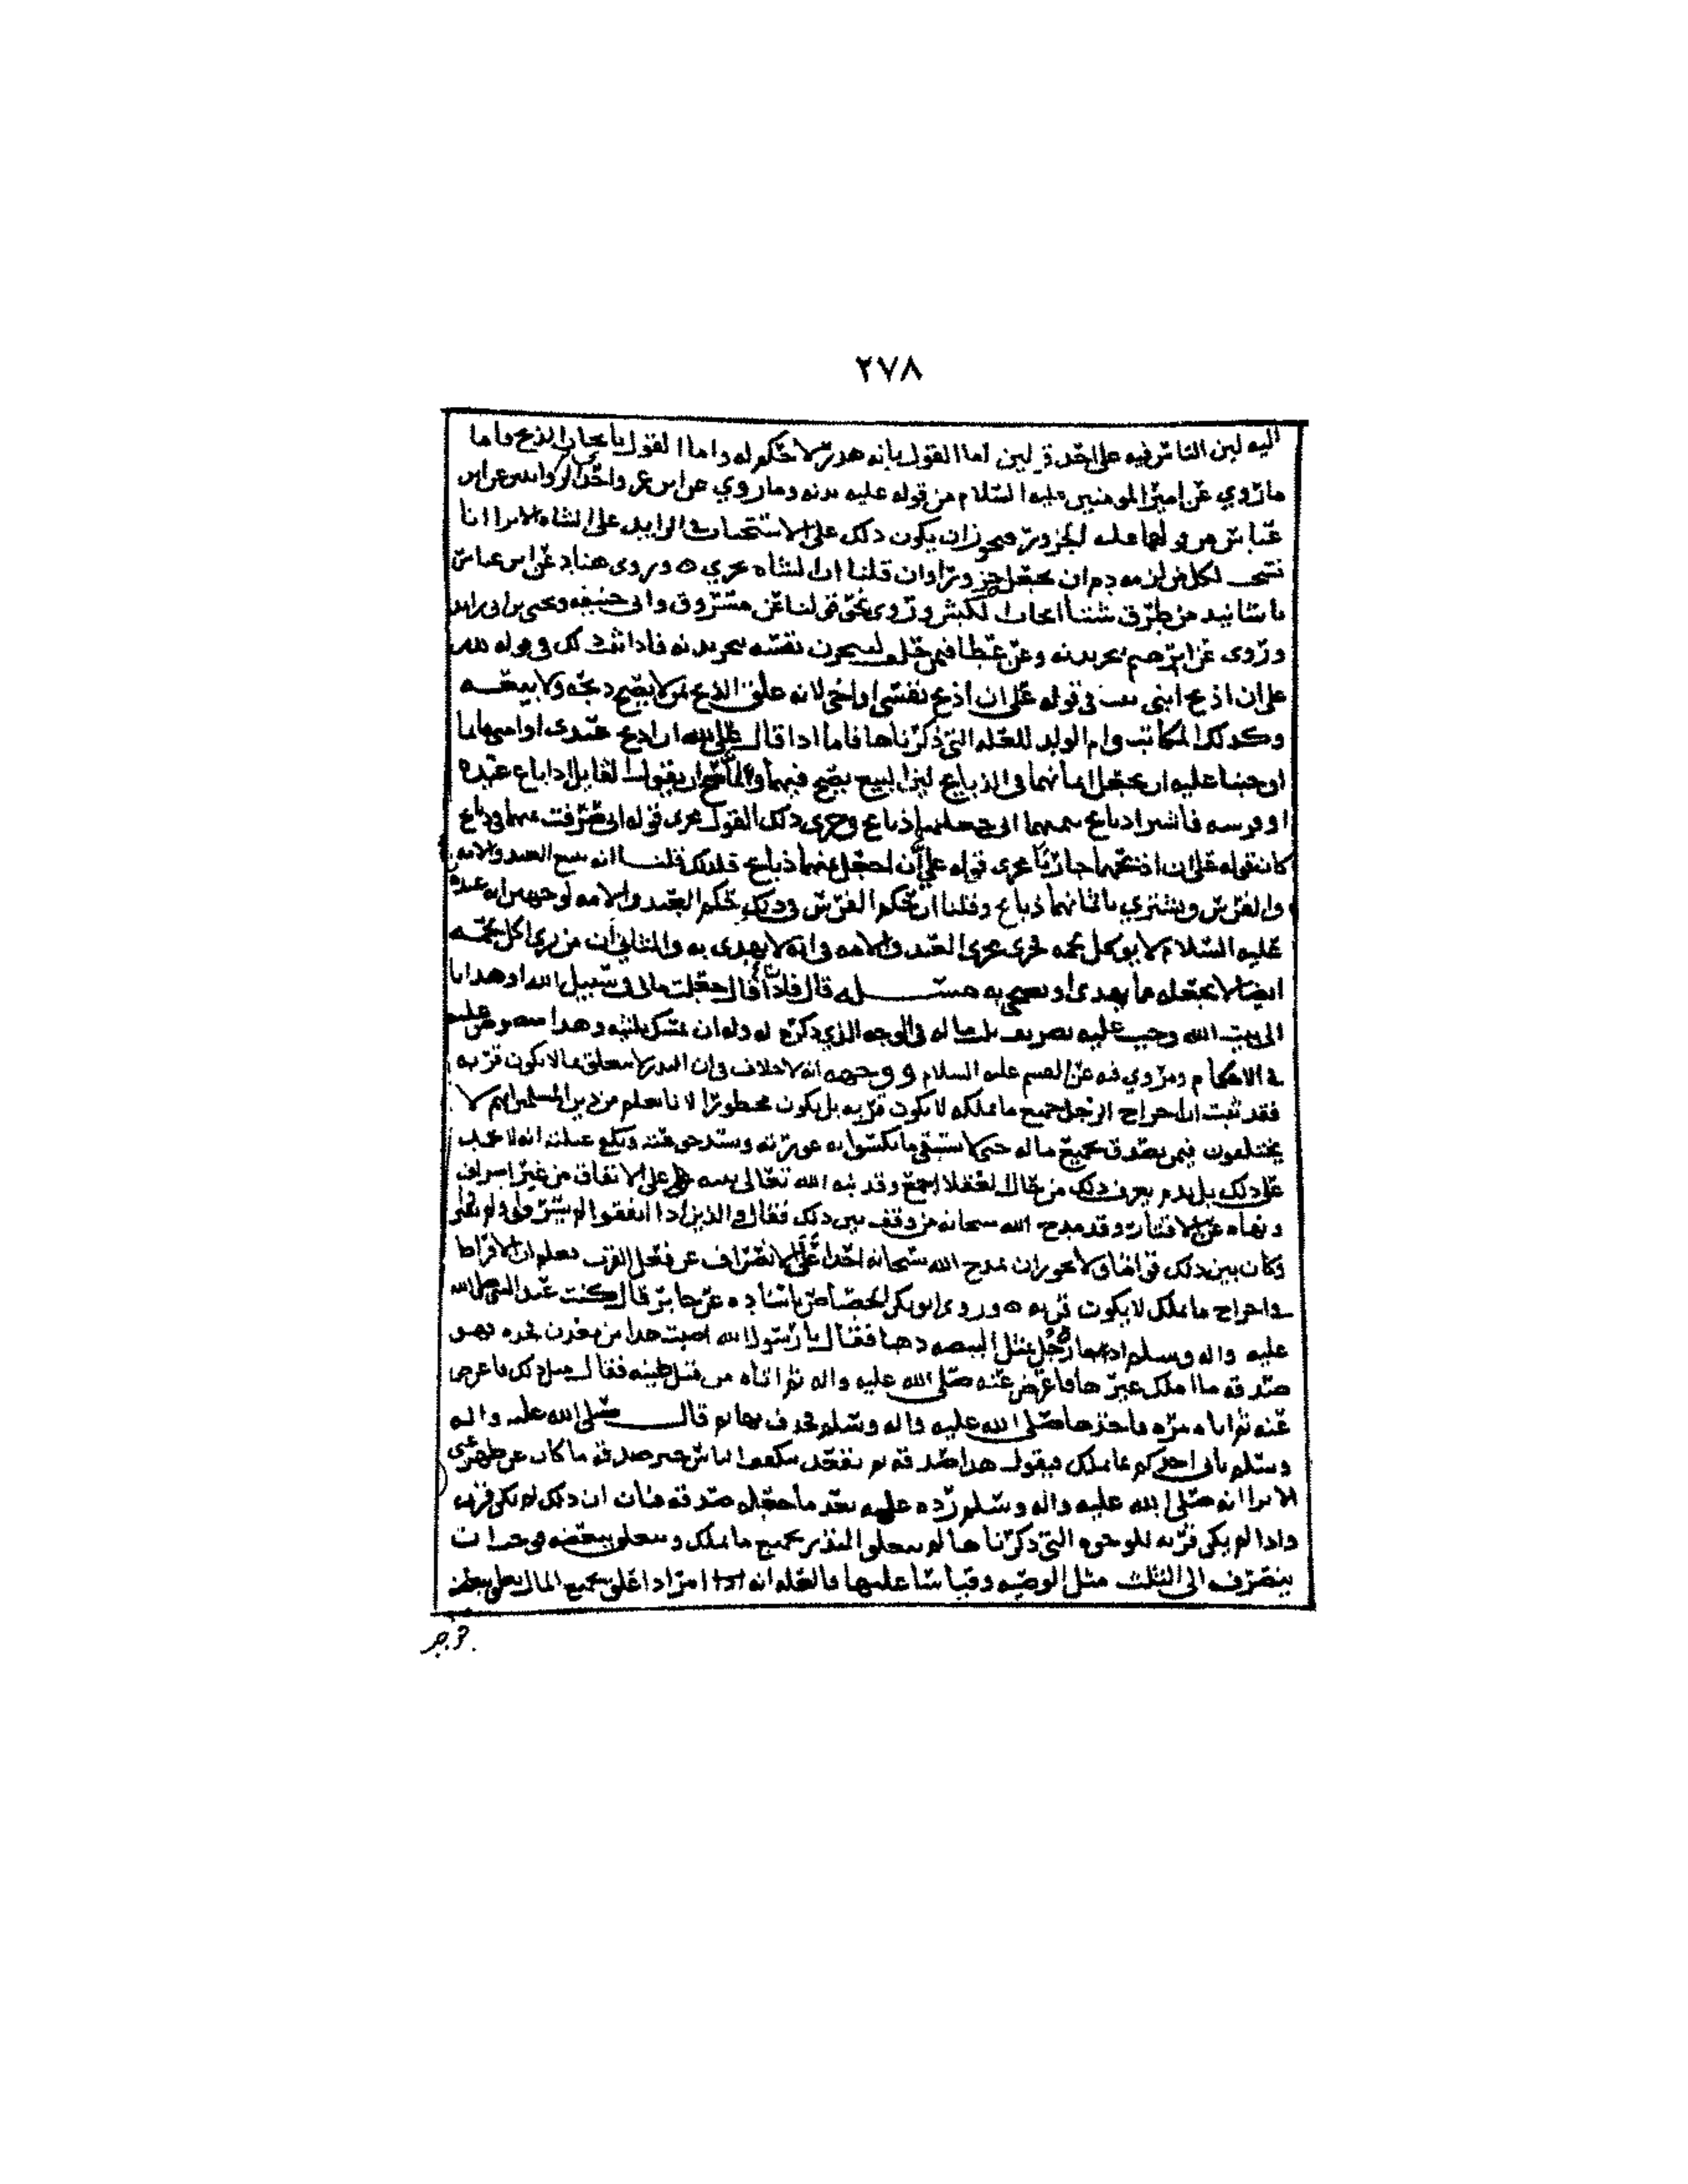 ٢٧٨
اليه لين الناس فيه على احد قولين اما القول بانه هدر لا حكم له واما القول بايجاب الذبح فاما
ماروي عن امير المومنين عليه السلام من قوله عليه بدنه وماروي عن ابن عمر واحدى الروايتين عن ابن
عباس من قولهما عليه الجزور فيجوز ان يكون ذلك على الاستحباب في الزايد على الشاه الا ترا انا
نستحب لكل من لزمه دم ان يجعل جزورا وان قلنا ان الشاه تجزي ه وروى هناد عن ابن عباس
باسانيد من طرق شتا ايجاب الكبش وروى نحو قولنا عن مسروق وابي حنيفه
وروى عن ابرهيم ينحر بدنه وعن عطا فيمن نفسه ينحر بدنه فاذا ثبت ذلك في قوله لله
على ان اذبح ابني ثبت في قوله على ان اذبح نفسي او اخي لانه علق الذبح بمن لا يصح ذبحه ولا بيعه
وكذلك المكاتب وام الولد للعله التي ذكرناها فاما اذا قال لله على ان اذبح عبدي او امتي فانما
اوجبنا عليه ان يجعل اثمانهما في الذبايح لين البيع يصح فيهما
او فرسه فاشترا ذبايح بثمنهما وجرى ذلك القول مجرى قوله
كان قوله على ان اذبحهما جاريا مجرى قوله على ان اجعل ثمنهما ذبايح فلذلك قلنا انه يبيع العبد والامه
والفرس ويشتري باثمانهما ذبايح وقلنا ان حكم الفرس في ذلك حكم العبد والامه لوجهين انه عنده
عليه السلام لا يوكل لحمه فجرى مجرى العبد والامه في انه لا يهدى به والثاني ان من رى اكل لحمه
ايضا لا يجعله مما يهدى او يضحى به مسئله قال فاذا قال جعلت مالي في سبيل الله او هدايا
الى بيت الله وجب عليه تصريف ثلث ماله في الوجه الذي ذكره له وله ان يمسك ثلثيه وهذا منصوص عليه
في الاحكام ومروي فيه عن القسم عليه السلام ووجهه انه لا خلاف في ان النذر لا يتعلق بما لا يكون قربه
فقد ثبت ان اخراج الرجل جميع ما يملكه لا يكون قربه بل يكون محظورا لانا نعلم من دين المسلمين انهم لا
يختلفون فيمن يصدق بجميع ماله حتى لا يستبقي ما يكسوا به عورته ويسد جوعته
على ذلك بل يذم يعرف ذلك من حال العقلا اجمع وقد نبه الله تعالى على الانفاق من غير اسراف
ونهاه عن الاقتار وقد مدح الله سبحانه من وقف بين ذلك فقال والذين اذا انفقوا لم يسرفوا ولم يقتروا
وكان بين ذلك قواما ولا يجوز ان يمدح الله سبحانه احدا على الانصراف عن فعل القرب فعلم ان الافراط
في اخراج ما يملك لا يكون قربه ه وروى ابو بكر الجصاص باسناده عن جابر قال كنت عند النبي صلى الله
عليه واله وسلم اذ جا رجل بمثل البيضه ذهبا فقال يا رسول الله اصبت هذا من معدن فخذه فهو
صدقه ما املك غيرها فاعرض عنه صلى الله عليه واله ثم اتاه من قبل يمينه فقال مثل ذلك فاعرض
عنه ثم اتاه مره فاخذها صلى الله عليه واله وسلم فحذف بها ثم قال صلى الله عليه واله
وسلم ياتي احدكم بما يملك فيقول هذا صدقه ثم يقعد يتكفف الناس خير صدقه ما كان عن ظهر غنى
الا ترا انه صلى الله عليه واله وسلم رده عليه بعد ما جعله صدقه فبان ان ذلك لم يكن قربه
واذا لم يكن قربه للوجوه التي ذكرناها لم يتعلق النذر بجميع ما يملك وتعلق ببعضه فوجب ان
ينصرف الى الثلث مثل الوصيه وقياسا عليها والعله انه امر اذا علق بجميع المال تعلق ببعض